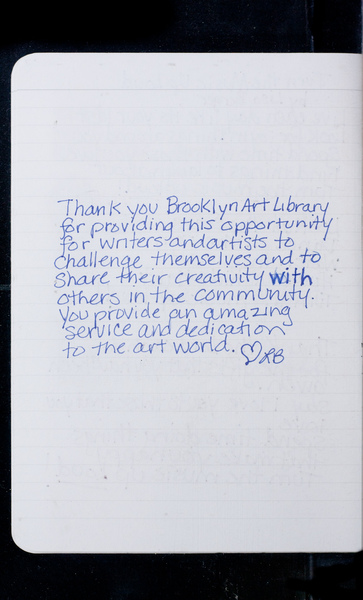 Thank you Brooklyn Art Library
for providing this opportunity
for writers and artists to
challenge themselves and to
share their creativity with
others in the community.
You provide an amazing
service and dedication
to the art world. ♡RB